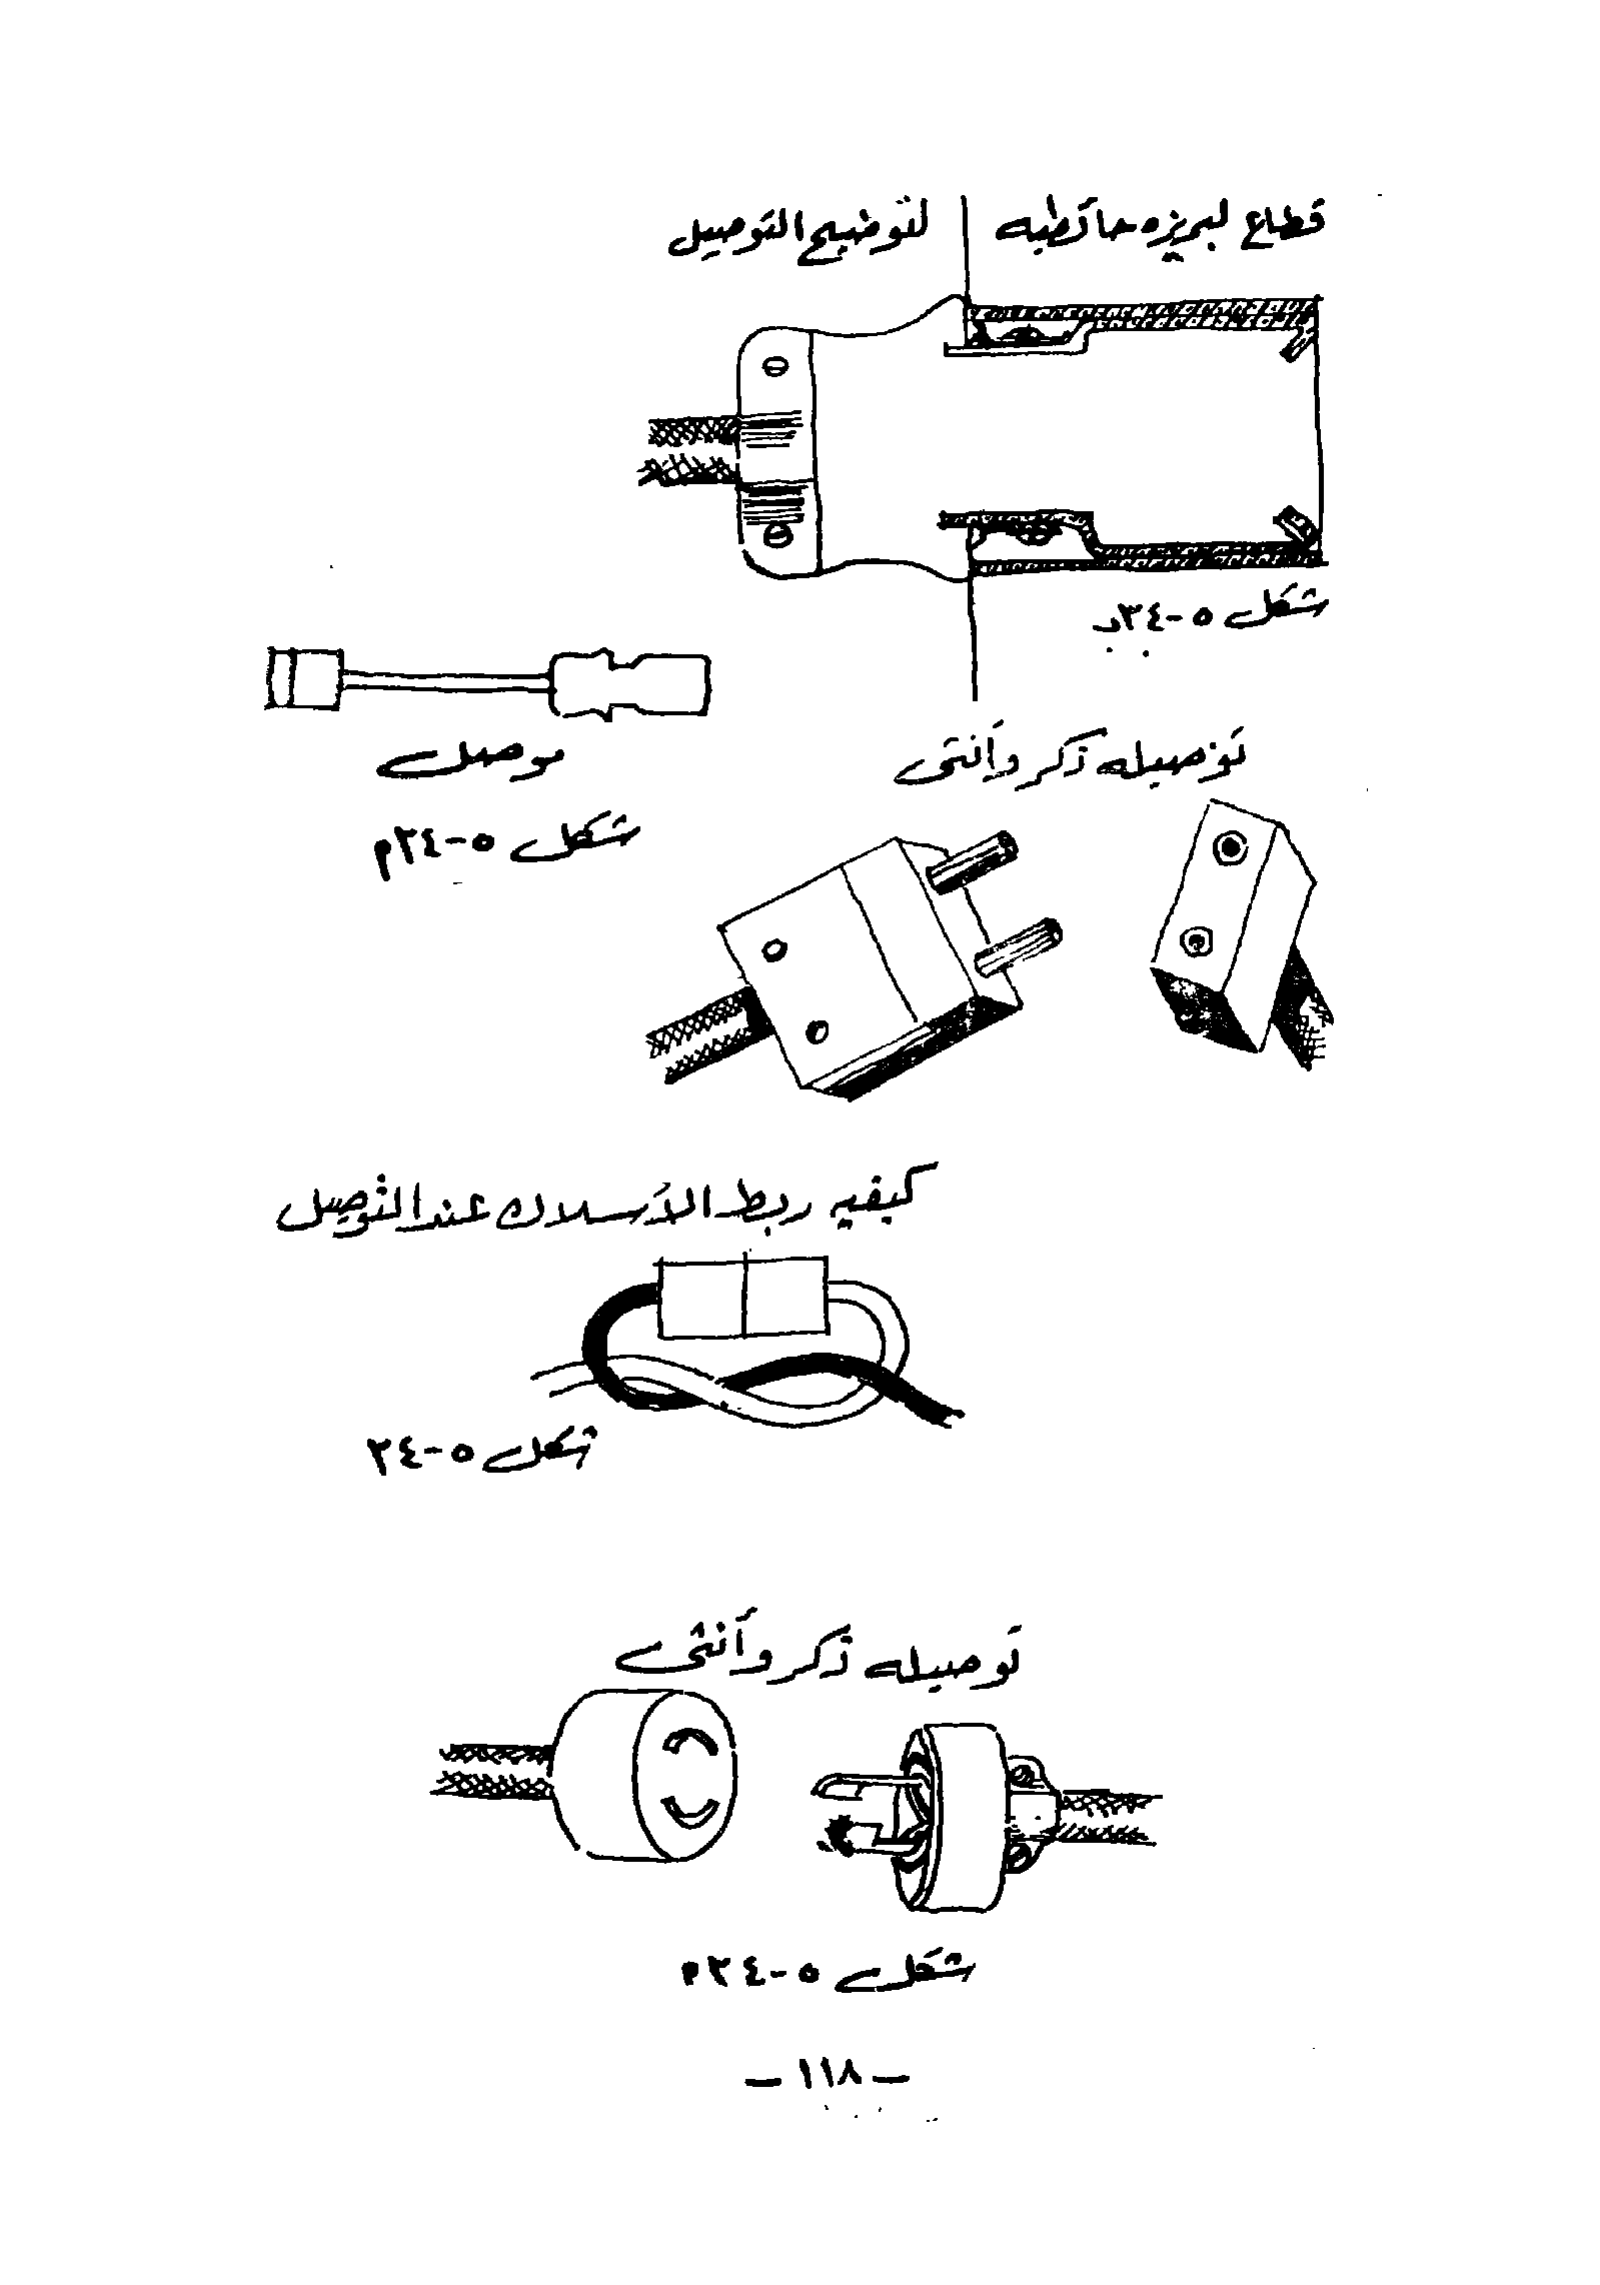 قطاع لبريزه حائطيه لتوضيح التوصيل
شكل ٥-٣٤د
موصل
توصيله ذكر وأنثى
شكل ٥-٣٤م
كيفيه ربط الأسلاك عند التوصيل
شكل ٥-٣٤
توصيله ذكر وأنثى
شكل ٥-٣٤م
- ١١٨ -